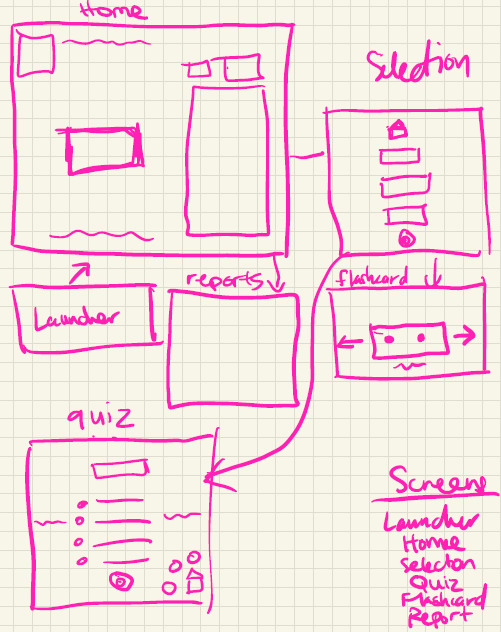 Home
Selection
reports
flashcard
Launcher
quiz
Screens
Launcher
Home
Selection
Quiz
Flashcard
Report